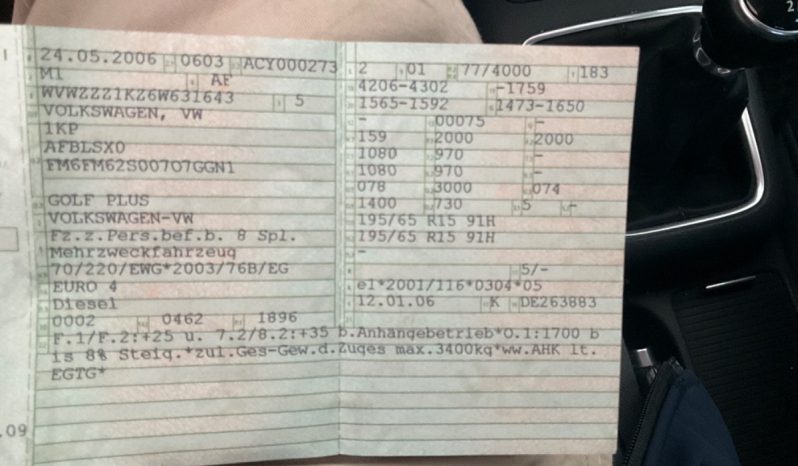 24.05.2006 0603 ACY000273
M1 AF
WVWZZZ1KZ6W631643 5
VOLKSWAGEN, VW
1KP
AFBLSX0
FM6FM62S00707GGN1
GOLF PLUS
VOLKSWAGEN-VW
Fz.z.Pers.bef.b. 8 Spl.
Mehrzweckfahrzeug
70/220/EWG*2003/76B/EG
EURO 4
Diesel
0002 0462 1896
2 01 77/4000 183
4206-4302 -1759
1565-1592 1473-1650
- 00075 -
159 2000 2000
1080 970 -
1080 970 -
078 3000 074
1400 730 5 -
195/65 R15 91H
195/65 R15 91H
-
5/-
e1*2001/116*0304*05
12.01.06 K DE263883
F.1/F.2:+25 u. 7.2/8.2:+35 b.Anhängebetrieb*O.1:1700 b
is 8% Steig.*zul.Ges-Gew.d.Zuges max.3400kg*ww.AHK lt.
EGTG*
.09
2